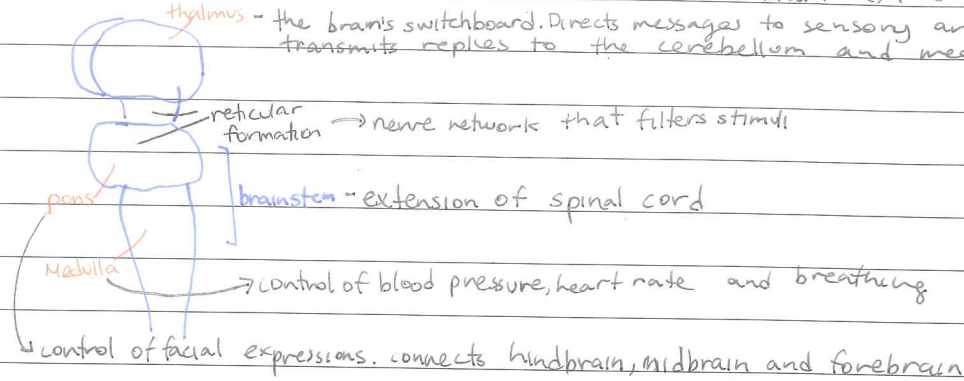 thalmus - the brain's switchboard. Directs messages to sensory
transmits replies to the cerebellum and
reticular
formation → nerve network that filters stimuli
brainstem - extension of spinal cord
pons
Medulla
→ control of blood pressure, heart rate and breathing
control of facial expressions. connects hindbrain, midbrain and forebrain